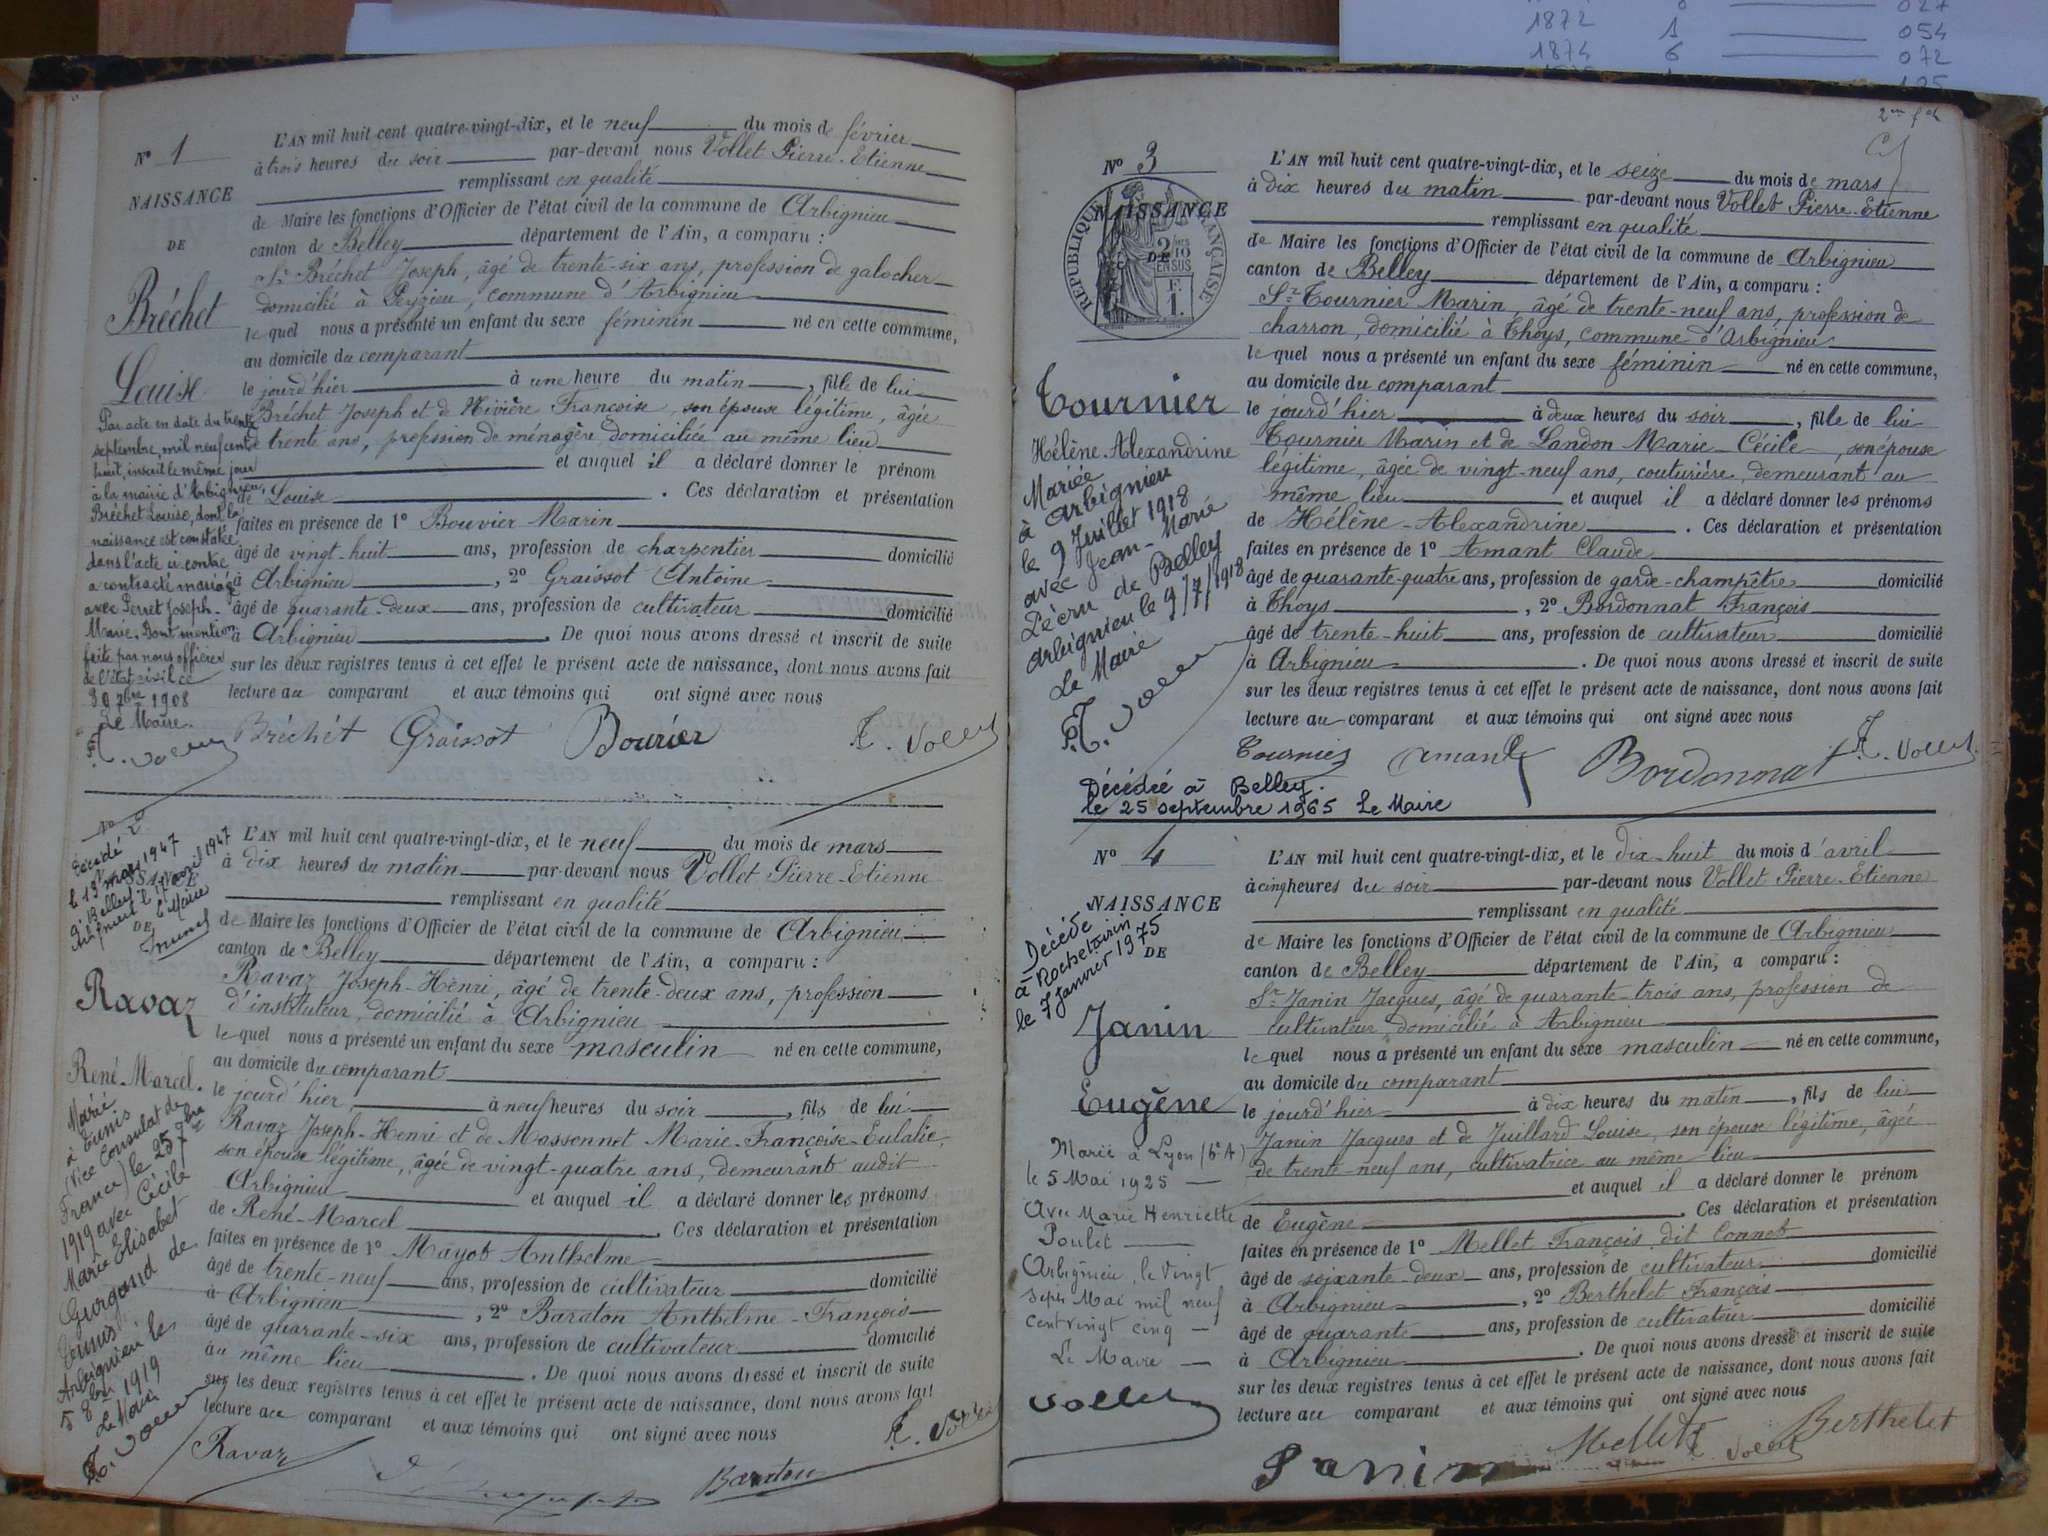 1872 1 054
1874 6 072
2me fet
N° 1
NAISSANCE
DE
Bréchet
Louise
Par acte en date du trente
septembre, mil neuf cent
huit, inscrit le même jour
à la mairie d'Arbignieu,
Bréchet Louise, dont la
naissance est constatée
dans l'acte ci-contre
a contracté mariage
avec Perret Joseph-
Marie. Dont mention
faite par nous officier
de l'état civil ce
30 7bre 1908
Le Maire.
L'AN mil huit cent quatre-vingt-dix, et le neuf du mois de février
à trois heures du soir par-devant nous Vollet Pierre-Etienne
remplissant en qualité
de Maire les fonctions d'Officier de l'état civil de la commune de Arbignieu
canton de Belley département de l'Ain, a comparu :
Sr Bréchet Joseph, âgé de trente-six ans, profession de galocher
domicilié à Peyzieu, commune d'Arbignieu
lequel nous a présenté un enfant du sexe féminin né en cette commune,
au domicile du comparant
le jourd'hier à une heure du matin, fille de lui
Bréchet Joseph et de Rivière Françoise, son épouse légitime, âgée
de trente ans, profession de ménagère, domiciliée au même lieu
et auquel il a déclaré donner le prénom
de Louise. Ces déclaration et présentation
faites en présence de 1° Bouvier Marin
âgé de vingt-huit ans, profession de charpentier domicilié
à Arbignieu, 2° Graissot Antoine
âgé de quarante-deux ans, profession de cultivateur domicilié
à Arbignieu. De quoi nous avons dressé et inscrit de suite
sur les deux registres tenus à cet effet le présent acte de naissance, dont nous avons fait
lecture au comparant et aux témoins qui ont signé avec nous
Bréchet Graissot Bouvier Vollet
N° 2
Décédé
le 13 mars 1947
à Belley
le 17 avril 1947
le Maire
NAISSANCE
DE
Ravaz
René-Marcel.
Marié
à Tunis
(Vice Consulat de
France) le 25 7bre
1919 avec Cécile
Marie Elisabet
Gorgand de
Tunis.
Arbignieu le
5 8bre 1919
Le Maire
L'AN mil huit cent quatre-vingt-dix, et le neuf du mois de mars
à dix heures du matin par-devant nous Vollet Pierre-Etienne
remplissant en qualité
de Maire les fonctions d'Officier de l'état civil de la commune de Arbignieu
canton de Belley département de l'Ain, a comparu :
Ravaz Joseph-Henri, âgé de trente-deux ans, profession
d'instituteur, domicilié à Arbignieu
lequel nous a présenté un enfant du sexe masculin né en cette commune,
au domicile du comparant
le jourd'hier, à neuf heures du soir, fils de lui
Ravaz Joseph-Henri et de Massonnet Marie-Françoise-Eulalie,
son épouse légitime, âgée de vingt-quatre ans, demeurant audit
Arbignieu et auquel il a déclaré donner les prénoms
de René-Marcel. Ces déclaration et présentation
faites en présence de 1° Mayot Anthelme
âgé de trente-neuf ans, profession de cultivateur domicilié
à Arbignieu, 2° Baraton Anthelme-François
âgé de quarante-six ans, profession de cultivateur domicilié
au même lieu. De quoi nous avons dressé et inscrit de suite
sur les deux registres tenus à cet effet le présent acte de naissance, dont nous avons fait
lecture au comparant et aux témoins qui ont signé avec nous
Ravaz Vollet
N° 3
NAISSANCE
DE
RÉPUBLIQUE FRANÇAISE
2 10
EN SUS
F. 1.
Tournier
Hélène-Alexandrine
Mariée
à Arbignieu
le 9 Juillet 1918
avec Jean-Marie
Pécru de Belley
Arbignieu le 9/7/1918
Le Maire
L'AN mil huit cent quatre-vingt-dix, et le seize du mois de mars
à dix heures du matin par-devant nous Vollet Pierre-Etienne
remplissant en qualité
de Maire les fonctions d'Officier de l'état civil de la commune de Arbignieu
canton de Belley département de l'Ain, a comparu :
Sr Tournier Marin, âgé de trente-neuf ans, profession de
charron, domicilié à Thoys, commune d'Arbignieu
lequel nous a présenté un enfant du sexe féminin né en cette commune,
au domicile du comparant
le jourd'hier à deux heures du soir, fille de lui
Tournier Marin et de Landon Marie-Cécile, son épouse
légitime, âgée de vingt-neuf ans, couturière, demeurant au
même lieu et auquel il a déclaré donner les prénoms
de Hélène-Alexandrine. Ces déclaration et présentation
faites en présence de 1° Amant Claude
âgé de quarante-quatre ans, profession de garde-champêtre domicilié
à Thoys, 2° Bordonnat François
âgé de trente-huit ans, profession de cultivateur domicilié
à Arbignieu. De quoi nous avons dressé et inscrit de suite
sur les deux registres tenus à cet effet le présent acte de naissance, dont nous avons fait
lecture au comparant et aux témoins qui ont signé avec nous
Tournier Amant Bordonnat Vollet
Décédée à Belley.
le 25 septembre 1965 Le Maire
N° 4
NAISSANCE
DE
Décédé
à Rochetoirin
le 7 Janvier 1975
Janin
Eugène
Marié à Lyon (6e A)
le 5 Mai 1925
Avec Marie Henriette
Poulet
Arbignieu, le Vingt
sept Mai mil neuf
cent vingt cinq
Le Maire
Vollet
L'AN mil huit cent quatre-vingt-dix, et le dix-huit du mois d'avril
à cinq heures du soir par-devant nous Vollet Pierre-Etienne
remplissant en qualité
de Maire les fonctions d'Officier de l'état civil de la commune de Arbignieu
canton de Belley département de l'Ain, a comparu :
Sr Janin Jacques, âgé de quarante-trois ans, profession de
cultivateur, domicilié à Arbignieu
lequel nous a présenté un enfant du sexe masculin né en cette commune,
au domicile du comparant
le jourd'hier à dix heures du matin, fils de lui
Janin Jacques et de Juillard Louise, son épouse légitime, âgée
de trente-neuf ans, cultivatrice au même lieu
et auquel il a déclaré donner le prénom
de Eugène. Ces déclaration et présentation
faites en présence de 1° Mellet François dit Connet
âgé de soixante-deux ans, profession de cultivateur domicilié
à Arbignieu, 2° Berthelet François
âgé de quarante ans, profession de cultivateur domicilié
à Arbignieu. De quoi nous avons dressé et inscrit de suite
sur les deux registres tenus à cet effet le présent acte de naissance, dont nous avons fait
lecture au comparant et aux témoins qui ont signé avec nous
Janin Mellet Vollet Berthelet